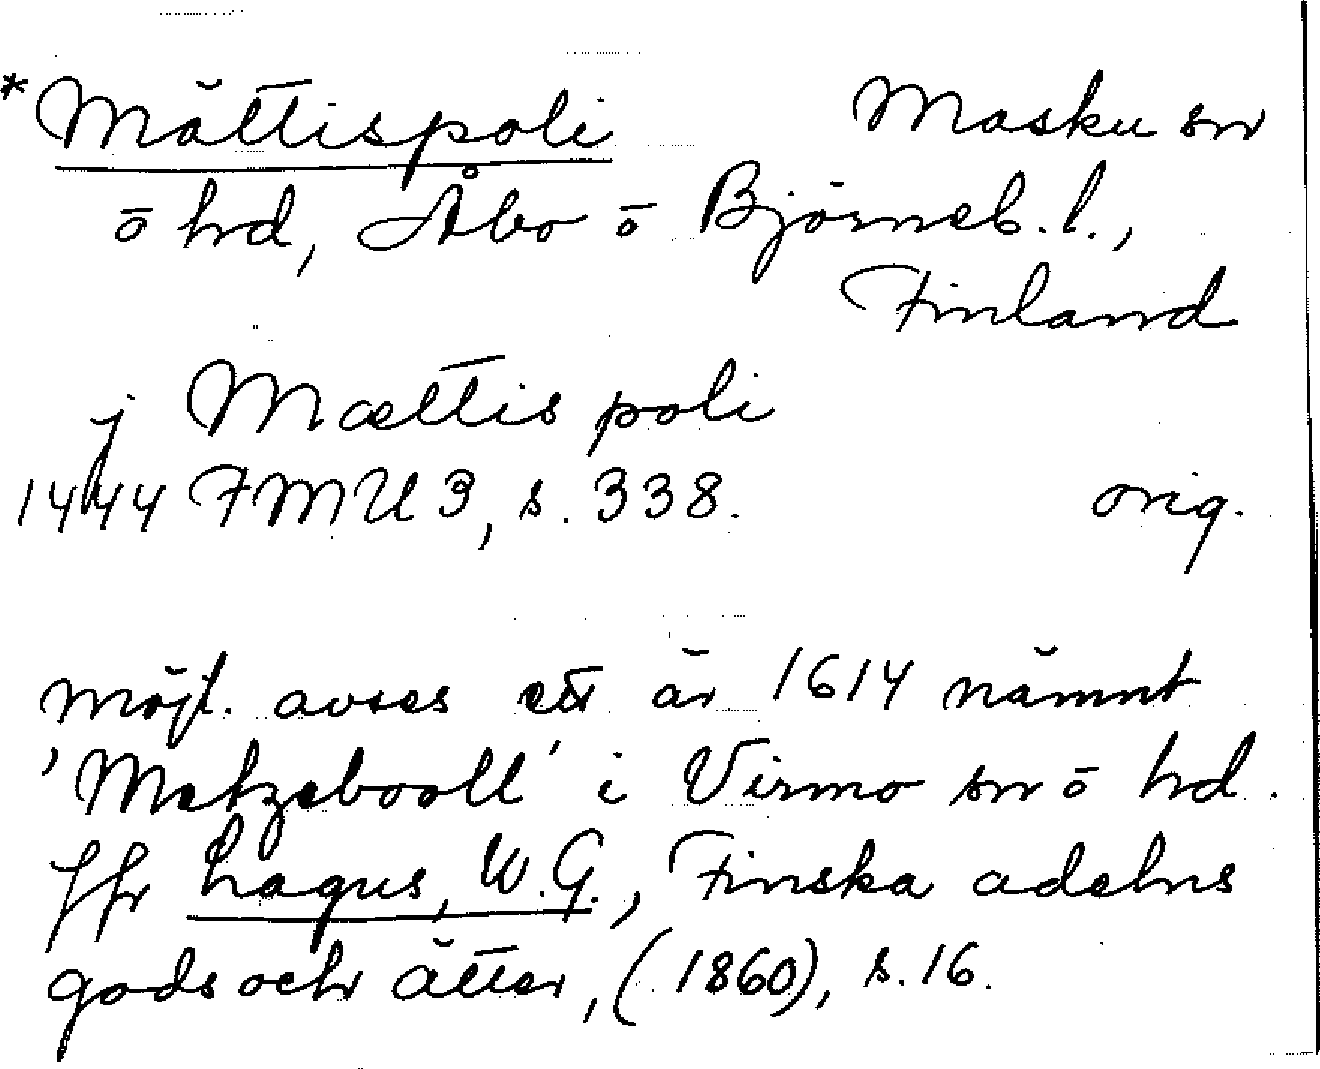 *Mättispoli Masku sn
o hd, Åbo o Björneb. l.,
Finland
j Mættis poli
1444 FMU 3, s. 338. orig.
möjl. avses ett år 1614 nämnt
'Metzebooll' i Virmo sn o hd.
jfr Lagus, W.G., Finska adelns
gods och ätter, (1860), s. 16.